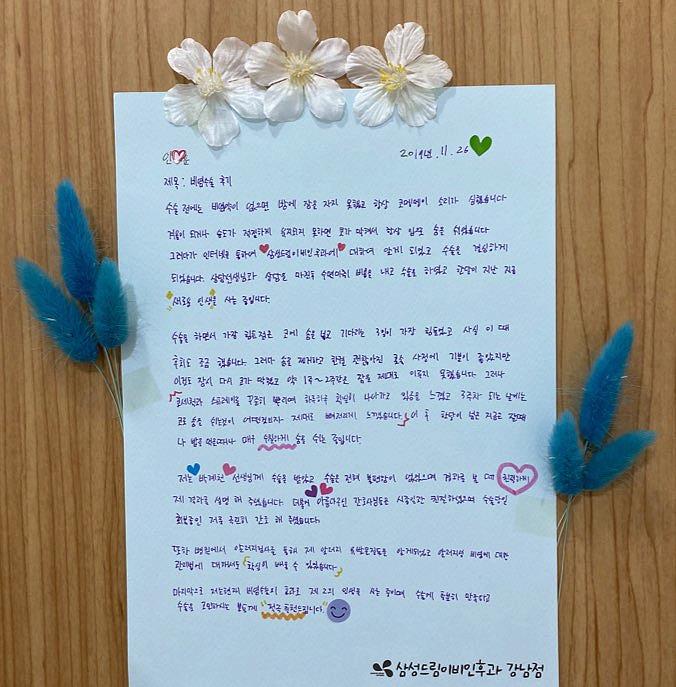 2019년. 11. 26
제목: 비염수술 후기
수술 전에는 비염약이 없으면 밤에 잠을 자지 못했고 항상 코맹맹이 소리가 심했습니다
겨울이 되거나 습도가 적절하게 유지되지 못하면 코가 막혀서 항상 입으로 숨을 쉬었습니다
그러다가 인터넷을 통하여 삼성드림이비인후과에 대하여 알게 되었고 수술을 결심하게
되었습니다. 상담선생님과 상담을 마친후 수면마취 비용을 내고 수술을 하였고 한달이 지난 지금
새로운 인생을 사는 중입니다.
수술을 하면서 가장 힘든점은 코에 솜을 넣고 기다리는 3일이 가장 힘들었고 사실 이 때
후회도 조금 했습니다. 그러나 솜을 제거하고 한결 괜찮아진 호흡 사정에 기분이 좋았지만
이것도 잠시 다시 코가 막혔고 약 1주~2주간은 잠을 제대로 이루지 못했습니다. 그러나
코세척과 스프레이를 꾸준히 뿌리며 하루하루 확실히 나아가고 있음을 느꼈고 3주차 되는 날에는
코로 숨을 쉬는것이 어떤것인지 제대로 뼈저리게 느꼈습니다. 이 후 한달이 넘은 지금은 잘때
나 밥을 먹을때나 매우 수월하게 숨을 쉬는 중입니다.
저는 박계천 선생님께 수술을 받았고 수술은 전혀 불편함이 없었으며 경과를 볼 때 친절하게
제 경과를 설명 해 주셨습니다. 더불어 아름다우신 간호사님들은 시종일관 친절하였으며 수술당일
회복중인 저를 극진히 간호 해 주셨습니다.
또한 병원에서 알레르기검사를 통해 제 알러지 유발물질들을 알게되었고 알러지성 비염에 대한
관리법에 대해서도 확실히 배울 수 있었습니다.
마지막으로 저는현재 비염수술의 효과로 제 2의 인생을 사는 중이며 수술에 충분히 만족하고
수술을 고민하시는 분들께 "적극 추천드립니다"
삼성드림이비인후과 강남점